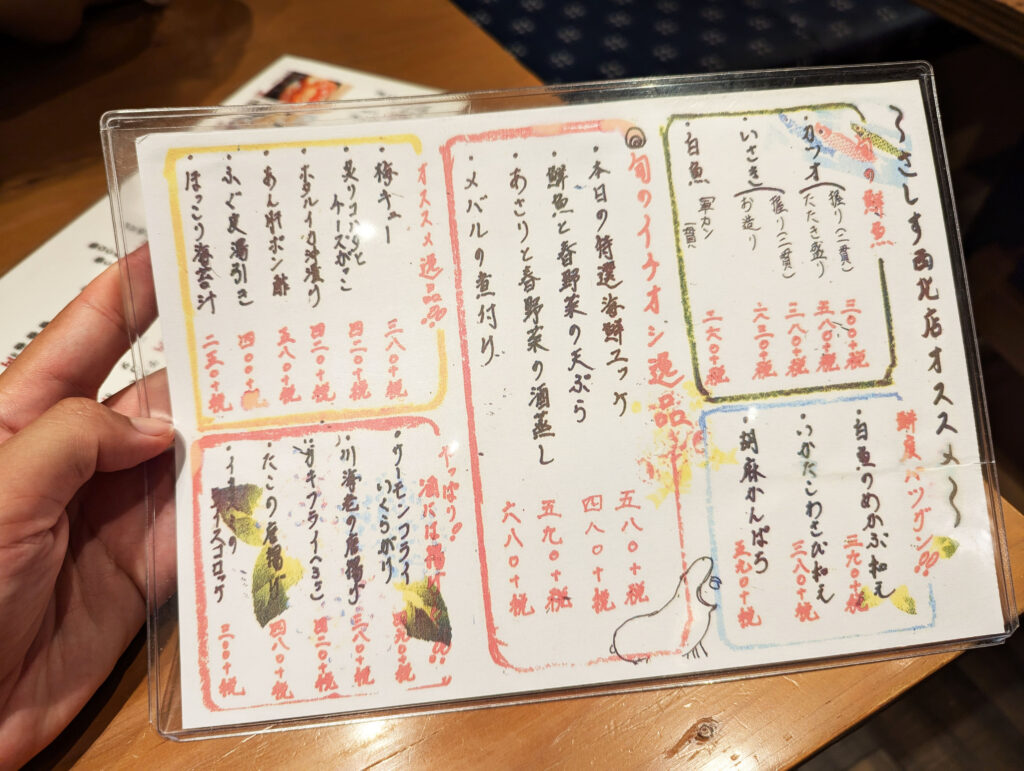 〜さしす西北店オススメ〜
旬の鮮魚
・カツオ(握り(二貫) 三〇〇+税
たたき盛り 五八〇+税
・いさき(握り(二貫) 三八〇+税
お造り 六二〇+税
・白魚 軍カン 一貫 二六〇+税
鮮度バツグン品
・白魚のめかぶ和え 三九〇+税
・いかたこわさび和え 三八〇+税
・胡麻かんぱち 五九〇+税
旬のイチオシ逸品
・本日の特選海鮮ユッケ 五八〇+税
・鮮魚と春野菜の天ぷら 四八〇+税
・あさりと春野菜の酒蒸し 五九〇+税
・メバルの煮付け 六八〇+税
オススメ逸品
・梅キュー 三八〇+税
・炙りコ
チーズがっこ 四二〇+税
・ホタルイカ沖漬け 四二〇+税
・あん肝ポン酢 五八〇+税
・ふぐ皮湯引き 四〇〇+税
・ほっこり海苔汁 二五〇+税
やっぱり!!
酒には揚げ
・サーモンユフライ
いくらがけ 九〇+税
・川海老の唐揚げ 三八〇+税
キフライ 四二〇+税
・たこの唐揚げ 四八〇+税
・イ の
コロッケ 三〇〇+税